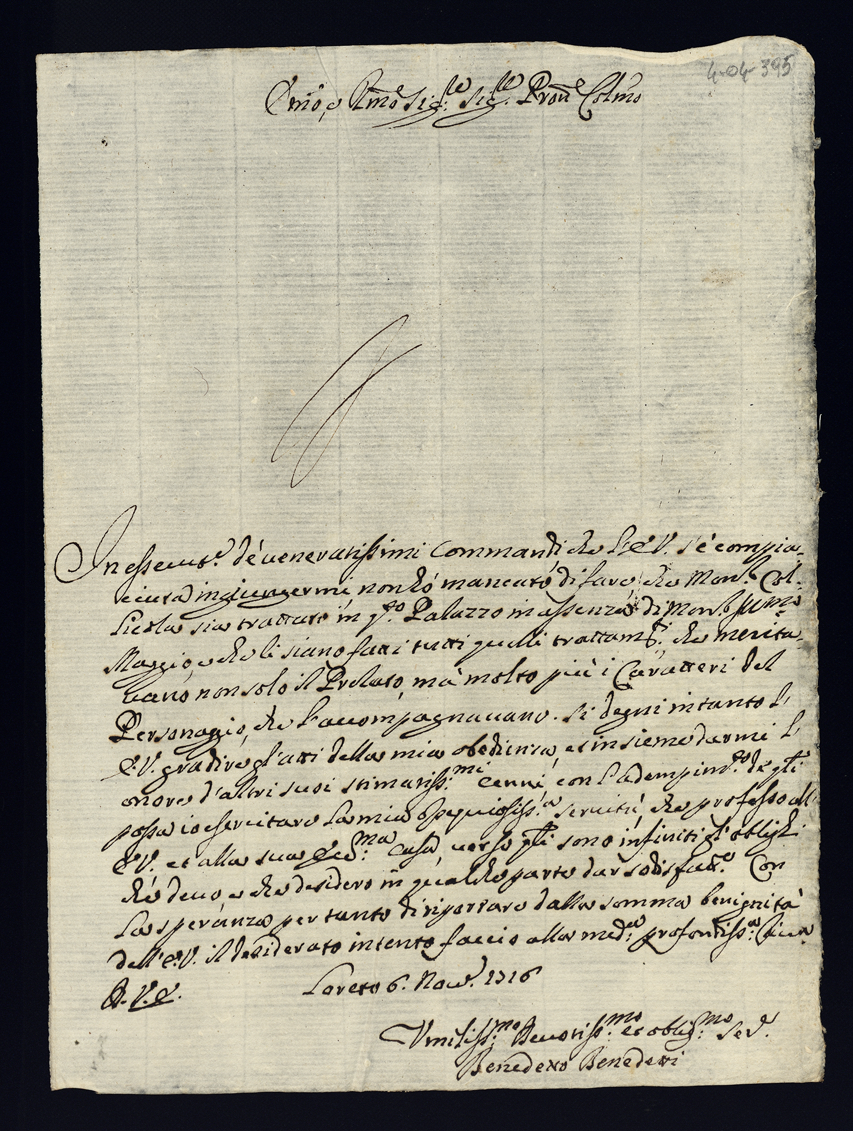 4-04-395
Emõ, e Rmõ Sig.re Sig.re Proñe Colmõ
In essecuz.e dé veneratissimi Commandi che l'E.V. s'è compia-
ciuta ingiungermi non hó mancato di fare, che Mon.r Col-
licola sia trattato in q.to Palazzo in assenza di Mons.r
Maggio, e che li siano fatti tutti quelli trattam.ti, che merita-
vano non solo il Prelato, má molto più i Caratteri del
Personaggio, che l'accompagnavano. Si degni intanto l'
E.V. gradire gl'atti della mia obedienza, et insieme darmi l'
onore d'altri suoi stimatiss.mi cenni, con l'adempim.to de q.li
possa io esercitare la mia ossequiosiss.a servitù, che professo all'
E.V. et alla sua Ecc.ma Casa, verso q.li sono infiniti gl'oblighi
ché devo, e che desidero in qualche parte dar sodisfaz.e. Con
la speranza per tanto di riportare dalla somma benignità
dell'E.V. il desiderato intento faccio alla med.a profondiss.a
D. V. E.
Loreto 6. Nov.e 1716
Umiliss.mo Devotiss.mo et oblig.mo Ser.
Benedetto Benedetti